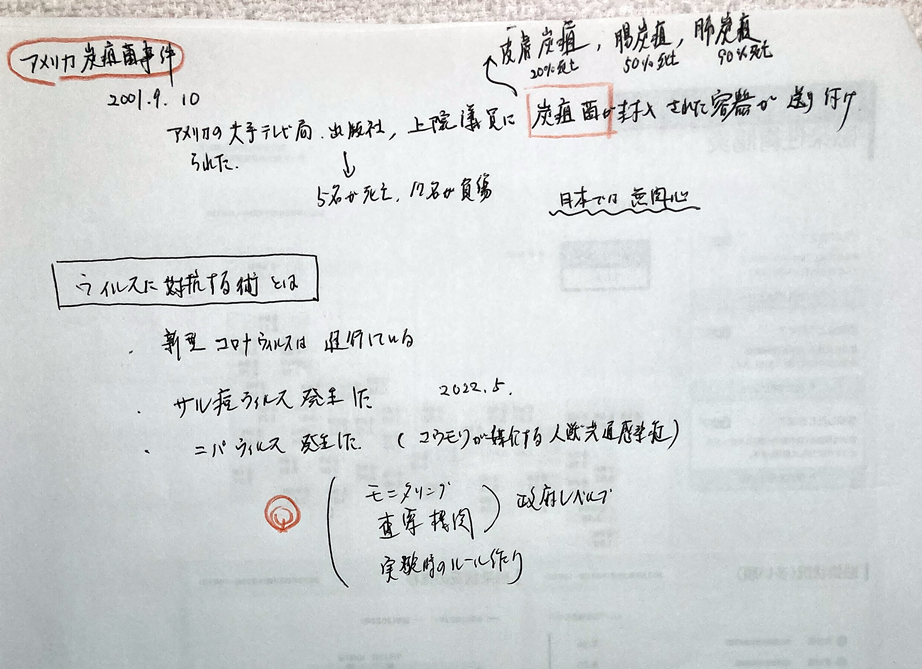 アメリカ炭疽菌事件
皮膚炭疽, 腸炭疽, 肺炭疽
20%死亡 50%死亡 90%死亡
2001.9.10
アメリカの大手テレビ局、出版社, 上院議員に 炭疽菌が封入された容器が送り付け
られた.
5名が死亡, 17名が負傷
日本では無関心
ウィルスに対抗する術とは
・新型コロナウィルスは進行している
・サル痘ウィルス発生した 2022.5.
・ニパウィルス発生した. (コウモリが媒介する人獣共通感染症)
モニタリング
査察機関
政府レベルで
実験時のルール作り